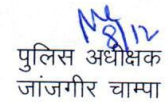 8/12
पुलिस अधीक्षक
जांजगीर चाम्पा